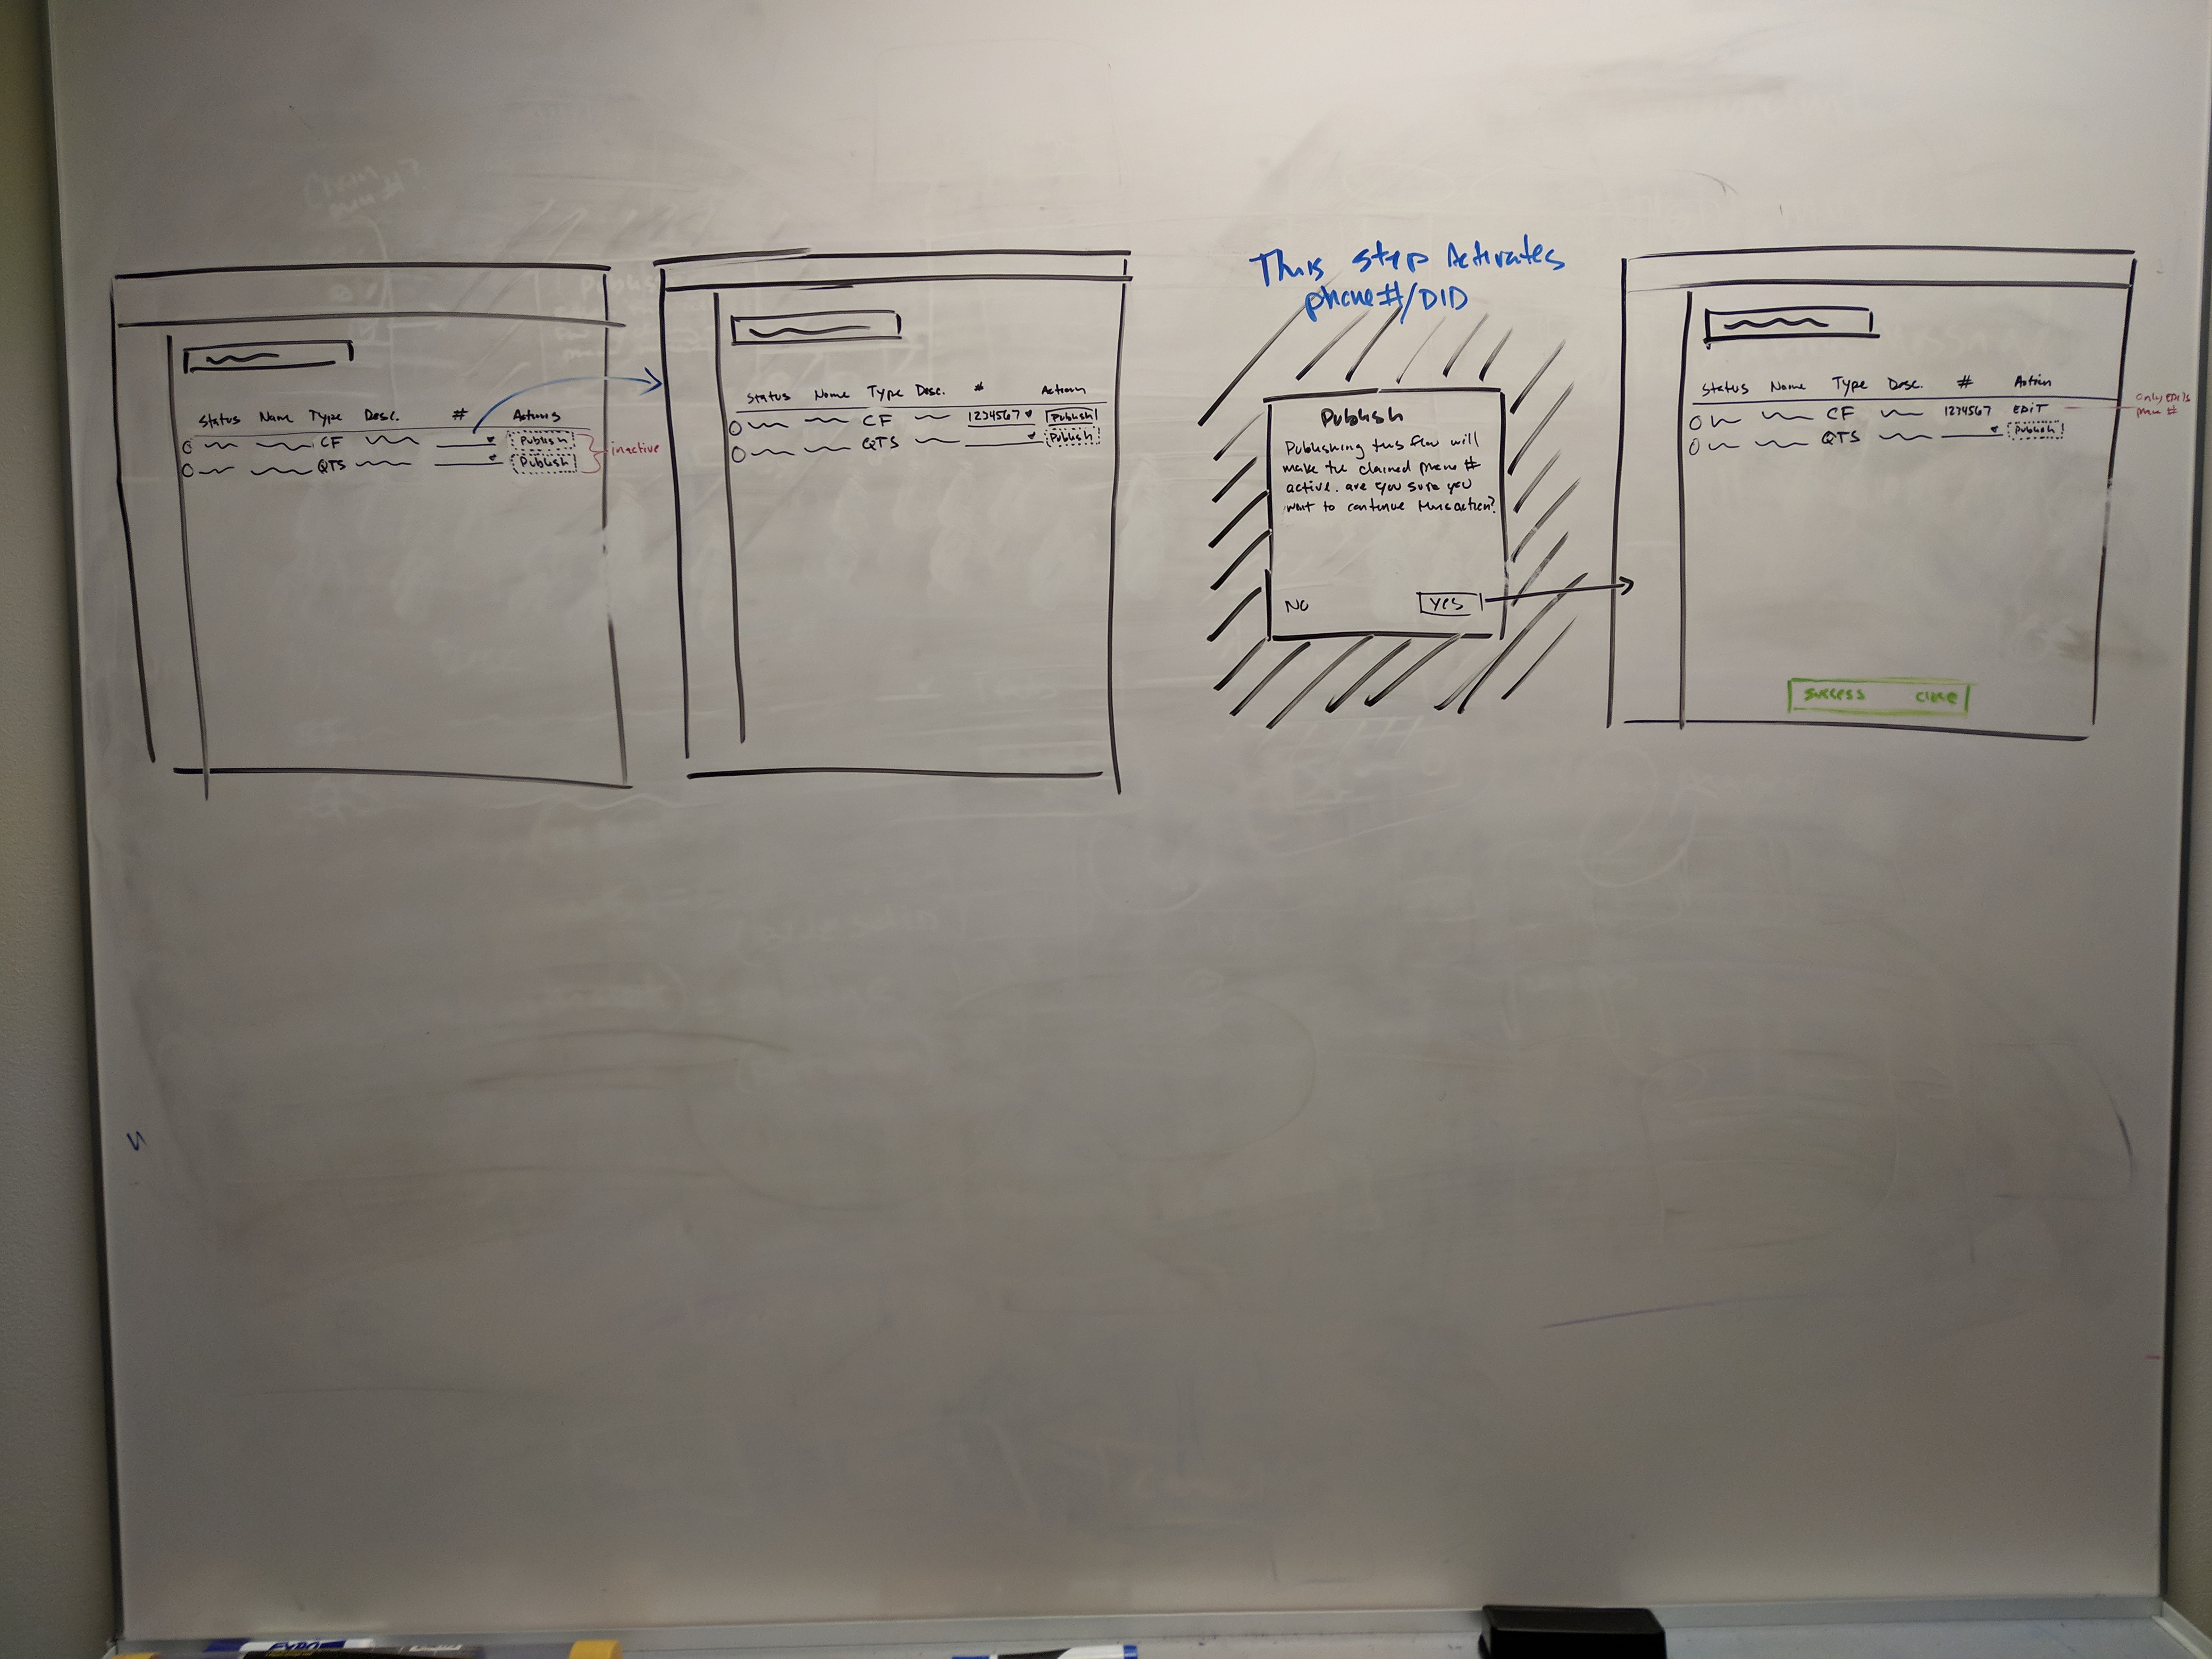 Status Name Type Desc. # Actions
CF Publish
QTS Publish
inactive
Status Name Type Desc. # Action
CF 1234567 Publish
QTS Publish
This step Activates
phone #/DID
Publish
Publishing this flow will
make the claimed phone #
active. are you sure you
want to continue this action?
No Yes
Status Name Type Desc. # Action
CF 1234567 EDIT
QTS Publish
only edits
#
success close
EXPO